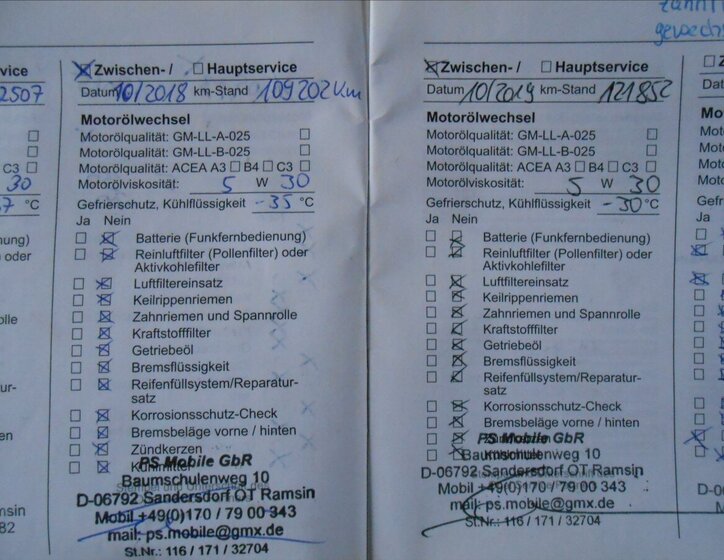 zahnri
gewechs
vice
2507
C3
30
°C
olle
ur-
en
msin
82
Zwischen- / Hauptservice
Datum 10/2018 km-Stand 109202 Km
Motorölwechsel
Motorölqualität: GM-LL-A-025
Motorölqualität: GM-LL-B-025
Motorölqualität: ACEA A3 B4 C3
Motorölviskosität: 5 W 30
Gefrierschutz, Kühlflüssigkeit -35 °C
Ja Nein
Batterie (Funkfernbedienung)
Reinluftfilter (Pollenfilter) oder
Aktivkohlefilter
Luftfiltereinsatz
Keilrippenriemen
Zahnriemen und Spannrolle
Kraftstofffilter
Getriebeöl
Bremsflüssigkeit
Reifenfüllsystem/Reparatur-
satz
Korrosionsschutz-Check
Bremsbeläge vorne / hinten
Zündkerzen
PS Mobile GbR
Baumschulenweg 10
D-06792 Sandersdorf OT Ramsin
Mobil +49(0)170 / 79 00 343
mail: ps.mobile@gmx.de
St.Nr.: 116 / 171 / 32704
Zwischen- / Hauptservice
Datum 10/2019 km-Stand 121852
Motorölwechsel
Motorölqualität: GM-LL-A-025
Motorölqualität: GM-LL-B-025
Motorölqualität: ACEA A3 B4 C3
Motorölviskosität: 5 W 30
Gefrierschutz, Kühlflüssigkeit -30 °C
Ja Nein
Batterie (Funkfernbedienung)
Reinluftfilter (Pollenfilter) oder
Aktivkohlefilter
Luftfiltereinsatz
Keilrippenriemen
Zahnriemen und Spannrolle
Kraftstofffilter
Getriebeöl
Bremsflüssigkeit
Reifenfüllsystem/Reparatur-
satz
Korrosionsschutz-Check
Bremsbeläge vorne / hinten
PS Mobile GbR
Baumschulenweg 10
D-06792 Sandersdorf OT Ramsin
Mobil +49(0)170 / 79 00 343
mail: ps.mobile@gmx.de
St.Nr.: 116 / 171 / 32704
Z
Datu
Mo
Mot
Mot
Mot
Mot
Gef
Ja